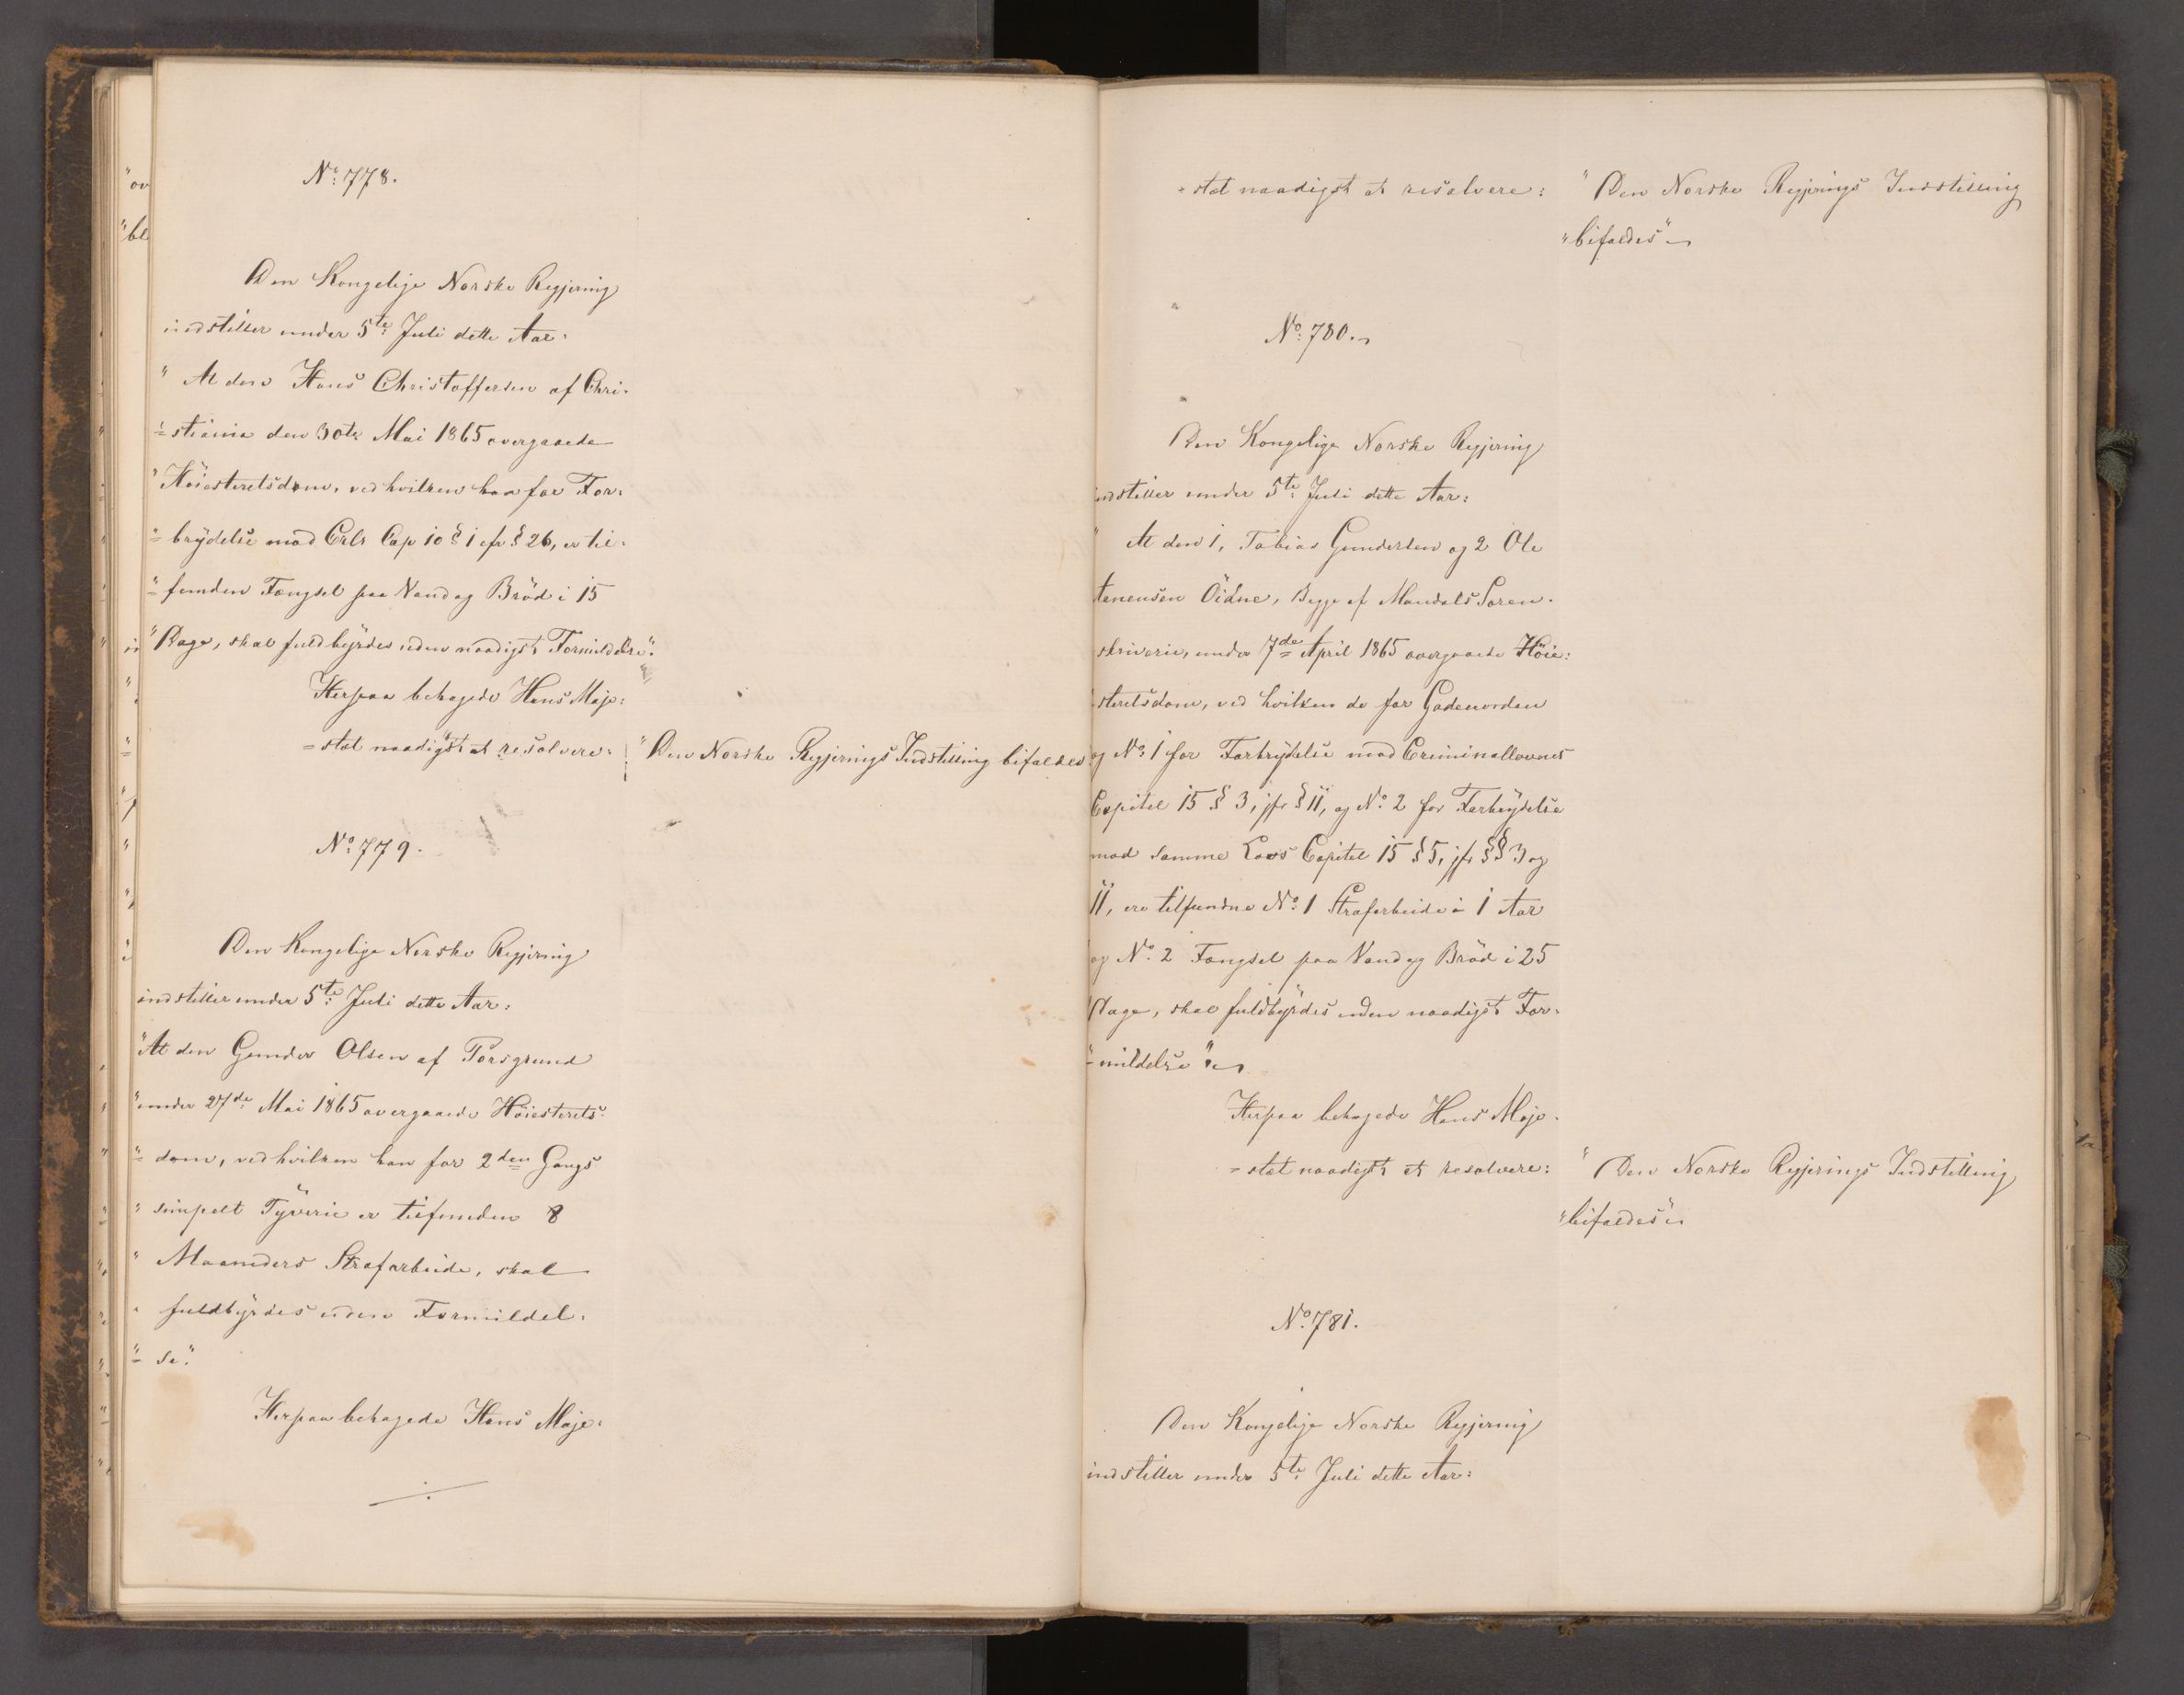 No: 778.
Den Kongelige Norske Regjering
indstiller under 5te Juli dette Aar:
"At den Hans Christoffersen af Chri-
"=stiania den 30te Mai 1865 overgaaede
"Höiesteretsdom, ved hvilken han for For-
"=brydelse mod Crls Cap 10 § 1 cfr § 26, er til-
"=funden Fængsel paa Vand og Bröd i 15
"Dage, skal fuldbyrdes uden naadigst Formildelse".
Herpaa behagede Hans Maje-
=stæt naadigst at resolvere: "Den Norske Regjerings Indstilling bifaldes
No: 779.
Den Kongelige Norske Regjering
indstiller under 5te Juli dette Aar:
"At den Gunder Olsen af Porsgrund
"under 27de Mai 1865 overgaaede Höiesterets-
"=dom, ved hvilken han for 2den Gangs
"simpelt Tyverie er tilfunden 8
"Maaneders Strafarbeide, skal
"fuldbyrdes uden Formildel-
"=se."
Herpaa behagede Hans Maje-
=stæt naadigst at resolvere: "Den Norske Regjerings Indstilling
"bifaldes"
No: 780.
Den Kongelige Norske Regjering
indstiller under 5te Juli dette Aar:
"At den 1, Tobias Gundersen og 2 Ole
Tønensen Öidne, Begge af Mandals Soren-
skriverie, under 7de April 1865 overgaaede Höie-
steretsdom, ved hvilken de for Gadeuorden
og No: 1 for Forbrydelse mod Criminallovens
Capitel 15 § 3, jfr § 11, og No: 2 for Forbrydelse
mod samme Lovs Capitel 15 § 5, jfr §§ 3 og
11, ere tilfundne No: 1 Strafarbeide i 1 Aar
og No: 2 Fængsel paa Vand og Bröd i 25
Dage, skal fuldbyrdes uden naadigst For-
"=mildelse"
Herpaa behagede Hans Maje-
=stæt naadigst at resolvere: "Den Norske Regjerings Indstilling
"bifaldes"
No: 781.
Den Kongelige Norske Regjering
indstiller under 5te Juli dette Aar: